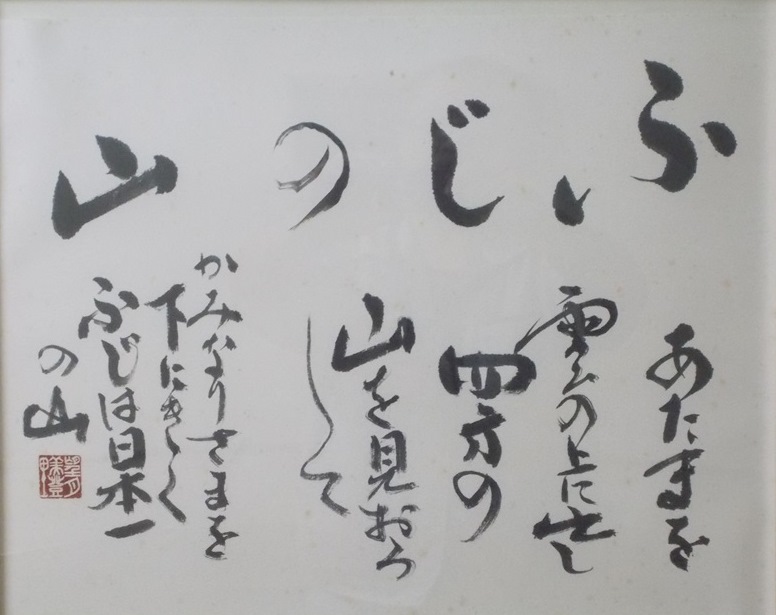 ふじの山
あたまを
雲の上に出し
四方の
山を見おろ
して
かみなりさまを
下にきく
ふじは日本一
の山